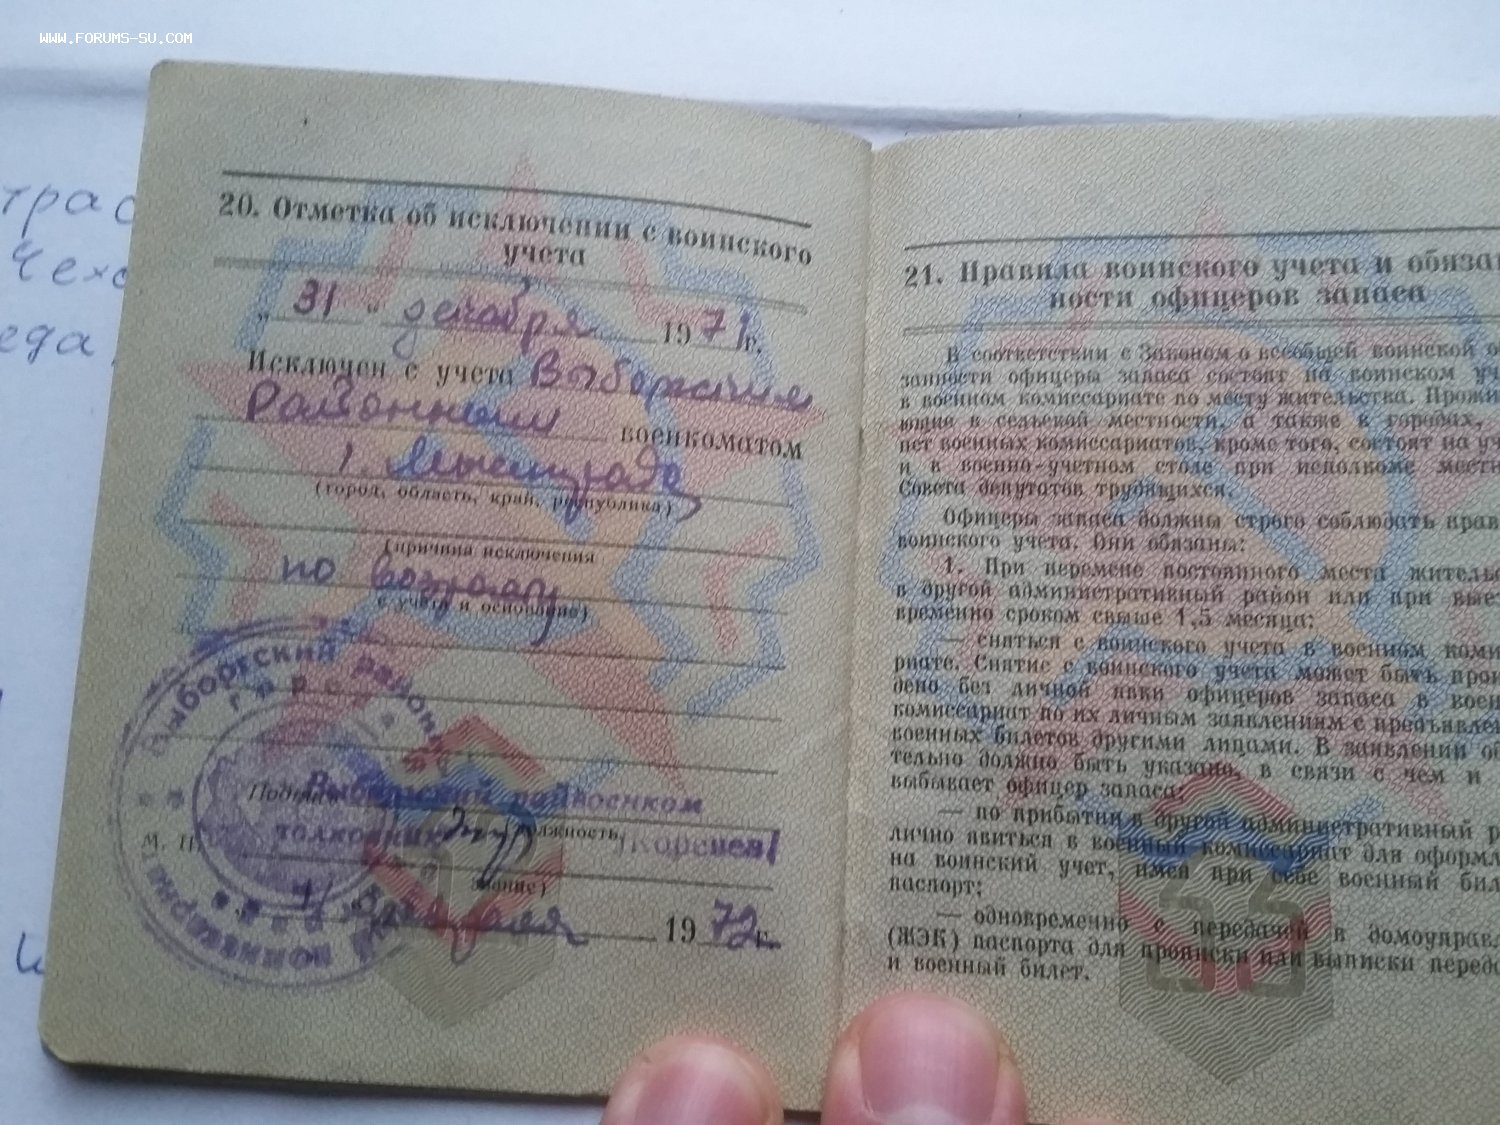 WWW.FORUMS-SU.COM
трас
Чехо
еда,
20. Отметка об исключении с воинского
учета
„ 31 " декабря 1971г.
Исключен с учета Выборгским
Районным военкоматом
г. Ленинграда
(город, область, край, республика)
(причина исключения
по возрасту
с учета и основание)
ВЫБОРГСКИЙ РАЙОНН
Выборгский райвоенком
должность,
полковник
М. П.
звание)
февраля 1972г.
21. Правила воинского учета и обязан
ности офицеров запаса
В соответствии с Законом о всеобщей воинской о
занности офицеры запаса состоят на воинском уч
в военном комиссариате по месту жительства. Прожи
ющие в сельской местности, а также в городах,
нет военных комиссариатов, кроме того, состоят на уч
и в военно-учетном столе при исполкоме местн
Совета депутатов трудящихся.
Офицеры запаса должны строго соблюдать прав
воинского учета. Они обязаны:
1. При перемене постоянного места жительс
в другой административный район или при вые
временно сроком свыше 1,5 месяца:
— сняться с воинского учета в военном коми
риате. Снятие с воинского учета может быть прои
дено без личной явки офицеров запаса в воен
комиссариат по их личным заявлениям с предъявле
военных билетов другими лицами. В заявлении об
тельно должно быть указано, в связи с чем и
выбывает офицер запаса;
— по прибытии в другой административный р
лично явиться в военный комиссариат для оформл
на воинский учет, имея при себе военный бил
паспорт;
— одновременно с передачей в домоуправл
(ЖЭК) паспорта для прописки или выписки переда
и военный билет.